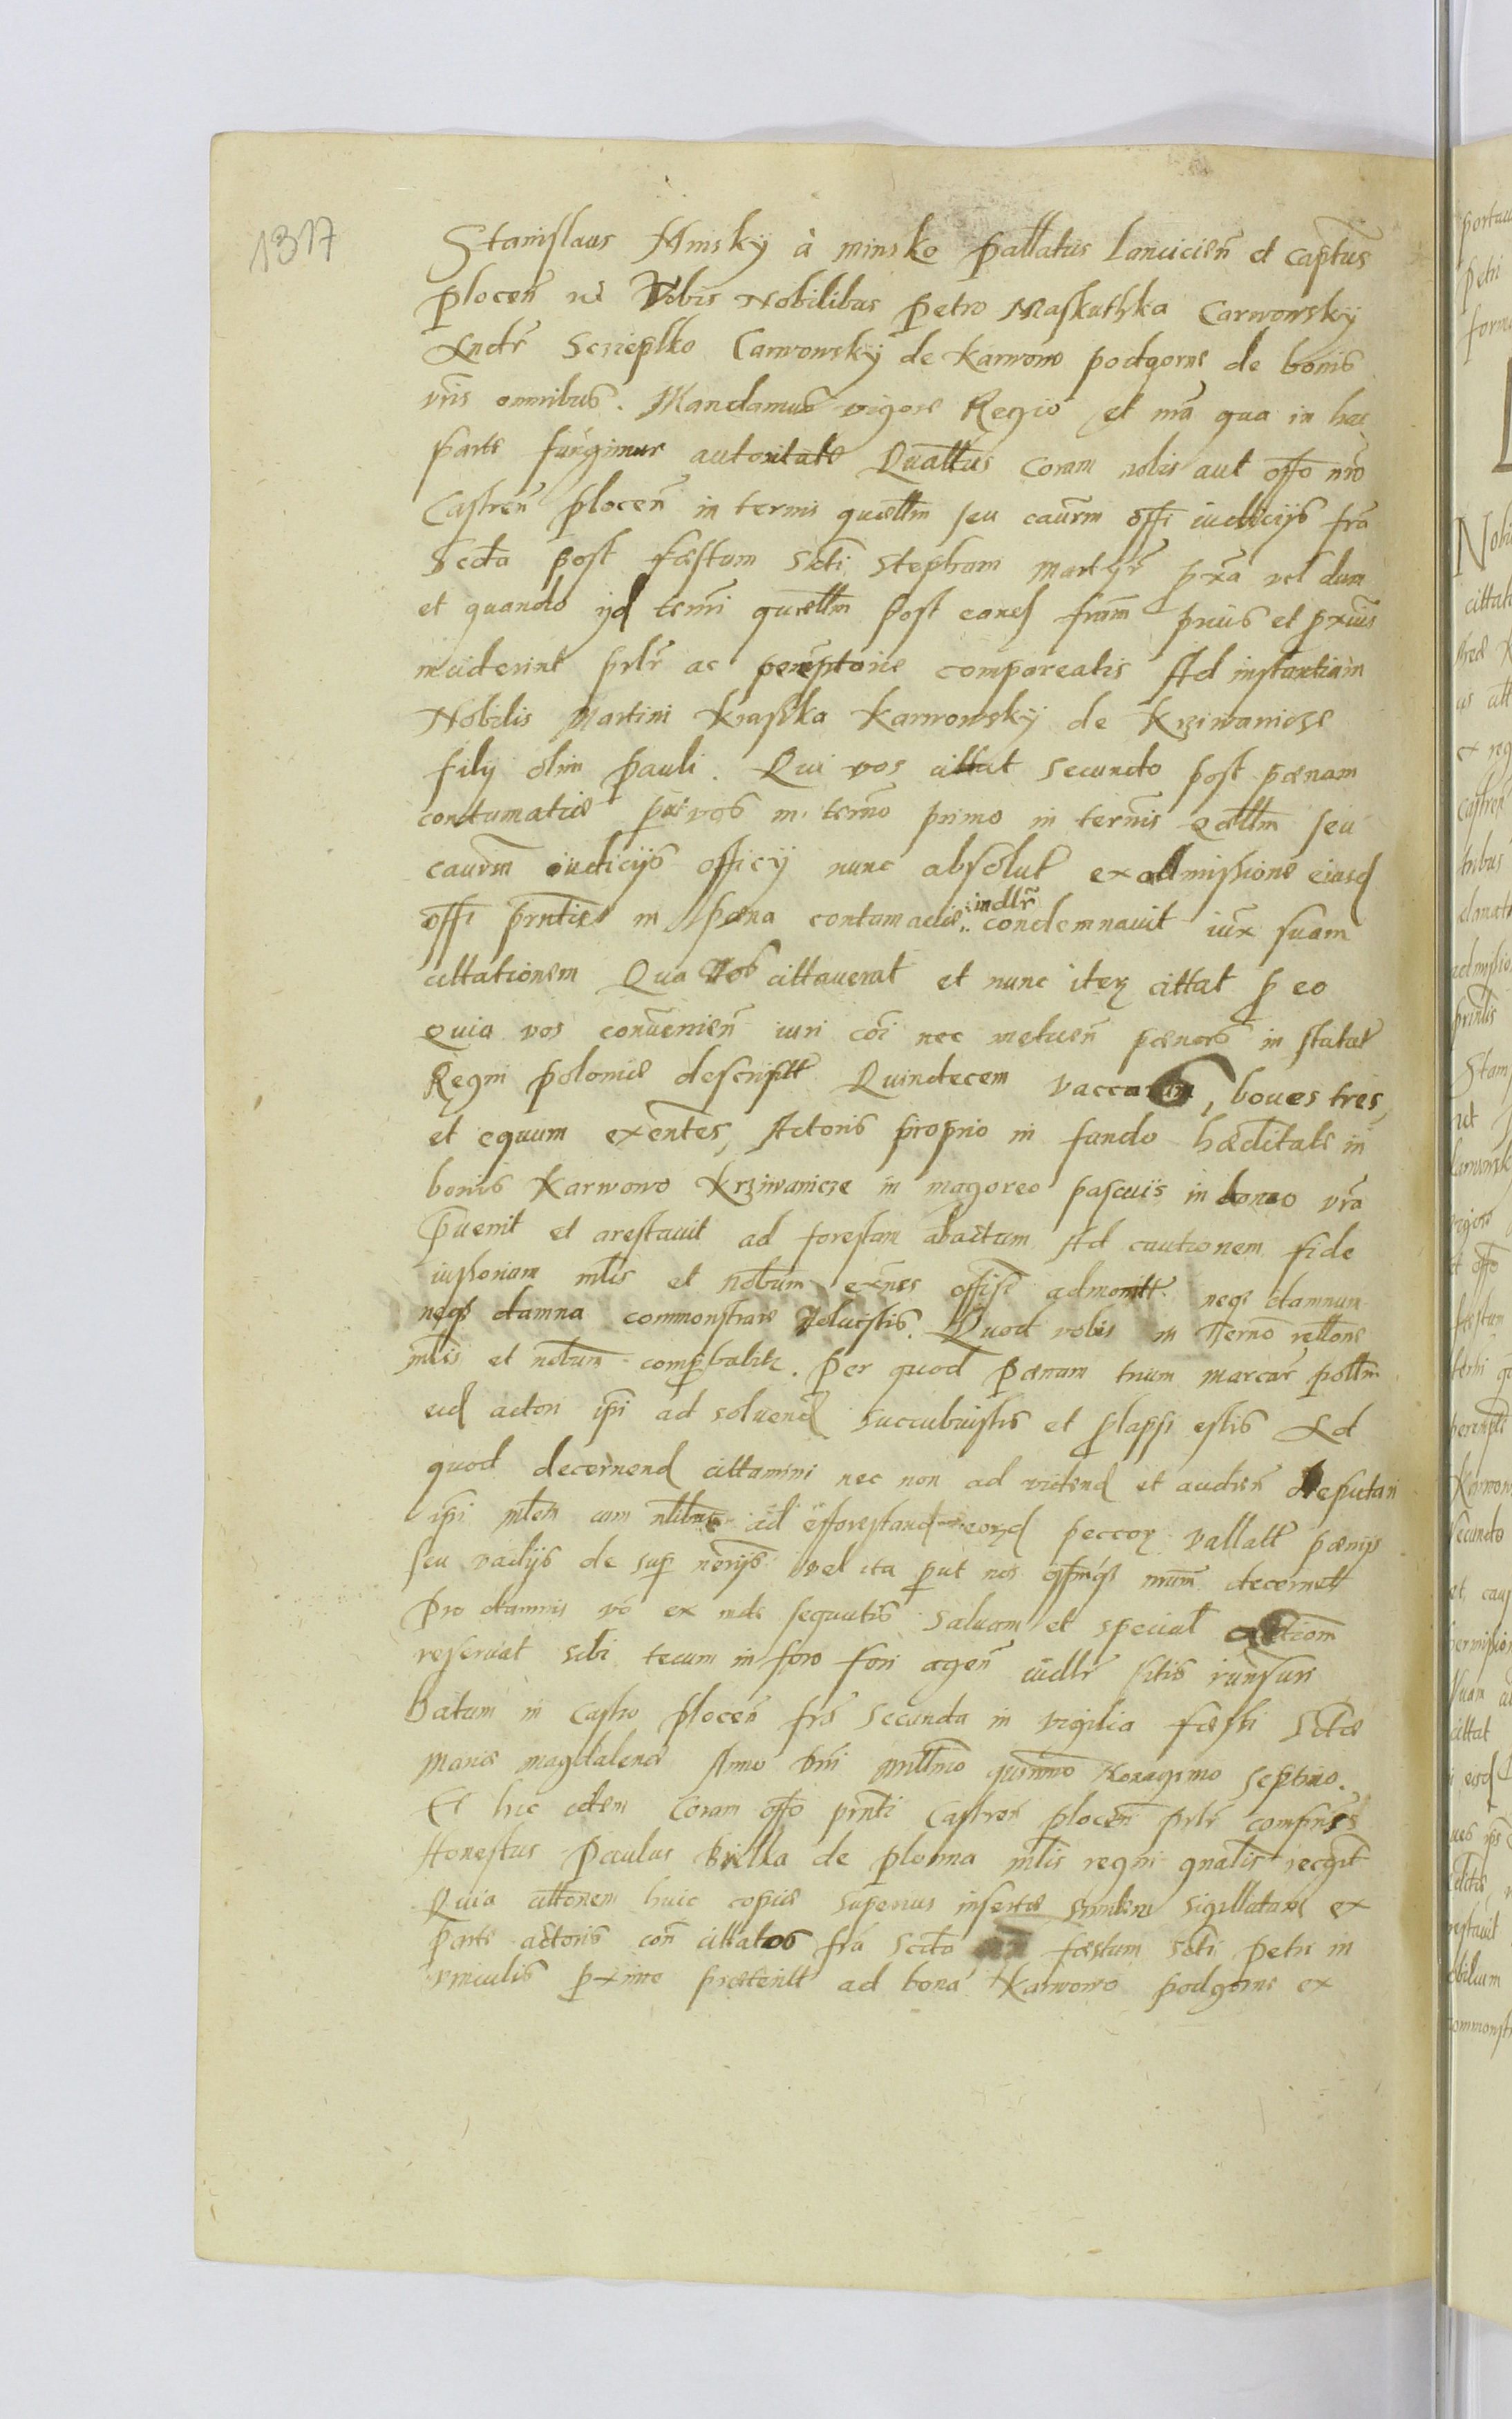 1317
Stanislaus Minsky à minsko pallatus Lanicien et capteus
plocen Vobis Nobilibus Petro Maskuthka Carwowsky
Andr Carwowsky de Karwowo podgorne de bonis
vris omnibus. Mandamus vigore Regio et nra qua in hac
parte fungimur autoritate Quattus coram nobis aut offo nro
Castren plocen in termis quællm seu caurm offi iudicijs fra
Scda post fæstum Scti Stephani martyr pxa vel dum
et quando ijd termi quællm post eand fram prius et pxius
inciderint prlr ac peremptorie compareatis Ad instantiam
Nobilis Martini Krasska Karwowsky de Krziwanicze
filij olim Pauli. Qui vos cittat secundo post pænam
contumatiæ per vos in termo primo in termis qællm seu
caurm iudicijs officij nunc absolut ex admissione eiusd
indlr
offi prntis in pæna contumaciæ condemnavit iux suam
cittationem Qua vos cittaverat et nunc iter cittat p eo
Quia vos convenien iuri coi nec metuen pænas in statut
Regni polonie descript Quindecem vaccas, boues tres,
et equum exentes, Actoris proprio in fundo hæditate in
bonis Karwowo Krziwanicze in magoreo pascuis in vra
pvenit et arestavit ad forestam abactum Ad cautionem fide
iussoriam mlis et nobum exnes admonitt neqe damnum
neqe damna commonstrare voluistis. Quod vobis in Termo rellone
mlis et nobum compbabitr. Per quod Pænam trium marcar pollm
eid actori ipi ad solvend succubuistis et plapsi estis Ad
quod decernend cittamini nec non ad vidend et audien deputari
ipi mlem cum nlibus ad efforestand eord peccor vallatt pænijs
seu vadijs de sup norijs vel ita put nrum decernett
Pro damnis vo ex inde sequutis salvam et special actiom
reservat sibi tecum in foro fori agen iudlr sitis
Datum in Castro plocen fra Secunda in vigilia fæsti Sctæ
Mariæ magdalenæ Anno Dni millmo quinmo Nonagsmo Septimo.
Et hic idem Coram offo prnti Castren plocen prlr comprnes
Honestus Paulus Brilka de plonna mlis regni gnalis recgit
Quia cittonem huic copiæ superius insertæ similem sigillatam ex
parte actoris con cittatos fra Scda fæstum Scti Petri in
vinculis pximo præteritt ad bona Karwowo podgorne ex